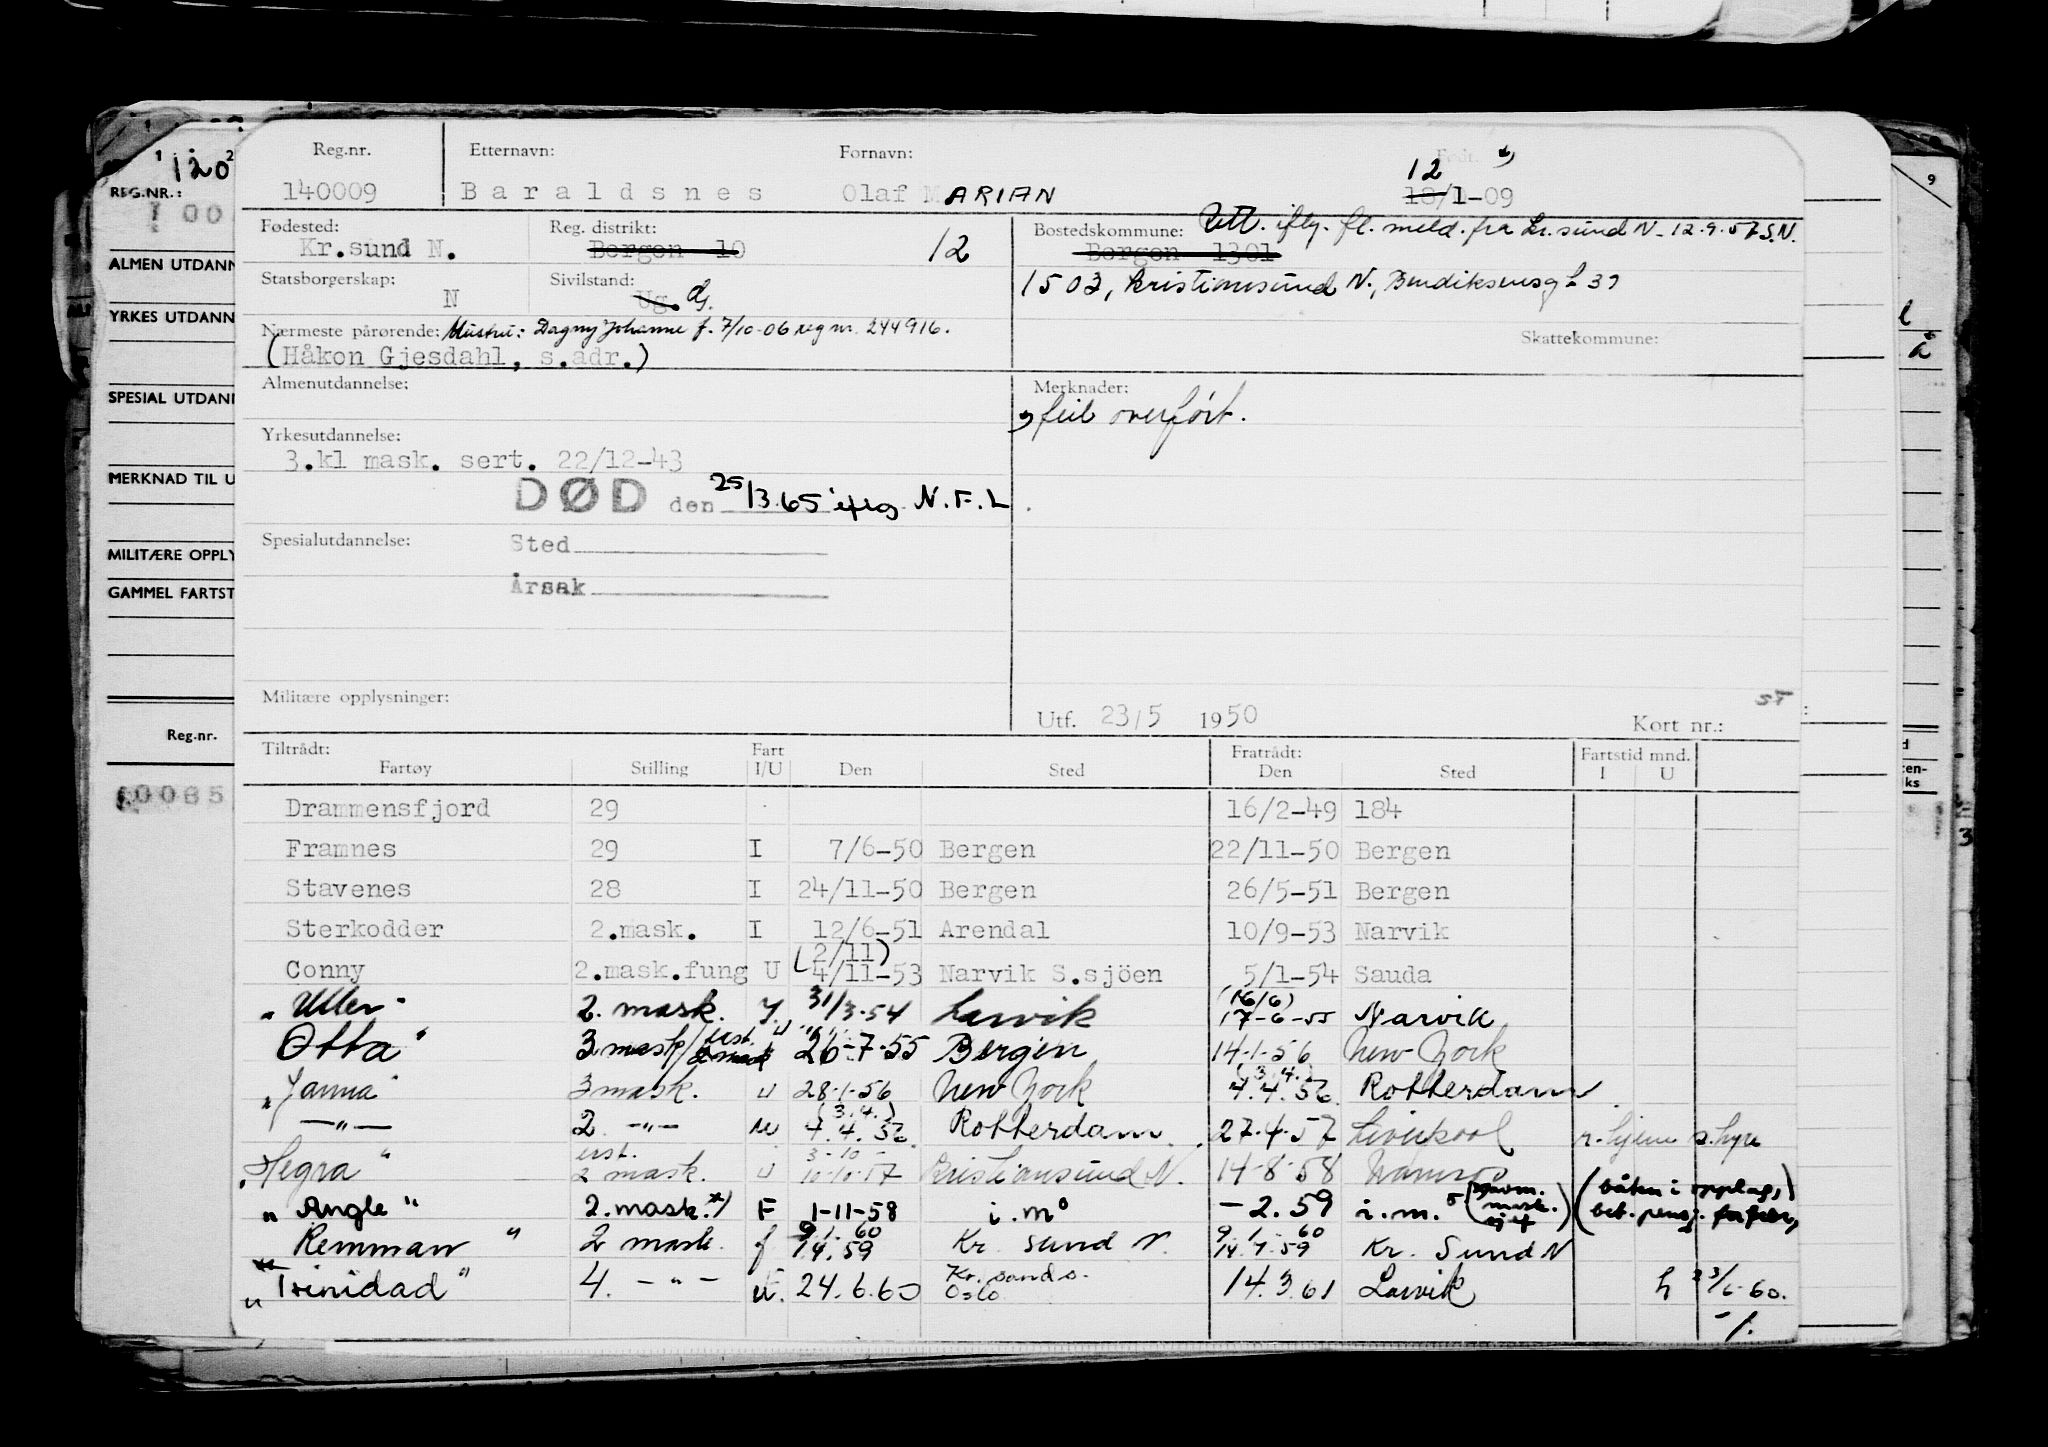 120
REG.NR.:
ALMEN UTDANN
YRKES UTDANN
SPESIAL UTDANN
MERKNAD TIL U
MILITÆRE OPPLY
GAMMEL FARTST
Reg.nr.
Reg.nr. Etternavn: Fornavn: Født:
140009 Baraldsnes Olaf MARIAN 12 18/1-09
Fødested: Reg. distrikt: Bostedskommune: Utt. iflg. fl. meld. fra Kr.sund N. 12.9.57 S.N.
Kr.sund N. Bergen 10 12 Bergen 1301
Statsborgerskap: Sivilstand: 1503, Kristiansund N.,
N Ug. G.
Nærmeste pårørende: Hustru: Dagny Johanne f. 7/10-06 reg nr. 244916.
(Håkon Gjesdahl, s.adr.) Skattekommune:
Almenutdannelse: Merknader:
feil overført.
Yrkesutdannelse:
3.kl mask. sert. 22/12-43
DØD den 25/3.65 iflg. N.F.L.
Spesialutdannelse: Sted
Årsak
Militære opplysninger: Utf. 23/5 1950 Kort nr.:
Tiltrådt: Fart Fratrådt: Fartstid mnd.
Fartøy Stilling I/U Den Sted Den Sted I U
Drammensfjord 29 16/2-49 184
Framnes 29 I 7/6-50 Bergen 22/11-50 Bergen
Stavenes 28 I 24/11-50 Bergen 26/5-51 Bergen
Sterkodder 2.mask. I 12/6-51 Arendal 10/9-53 Narvik
Conny 2.mask.fung U (2/11) 4/11-53 Narvik S.sjöen 5/1-54 Sauda
"Uller" 2. mask. 31/3-54 Larvik (16/6) 17-6-55 Narvik
Otta" 3 mask/ 26-7-55 Bergen 14-1-56 New York
"Janna" 3 mask. u 28-1-56 New York (3.4.) 4.4.56 Rotterdam
-"- 2. -"- u (3.4.) 4.4.56 Rotterdam 27-4-57 Liverpool r.hjem s.hyre
"Hegra" 2 mask. u 3-10- 10-10-57 Kristiansund N. 14-8-58
"Angle" 2.mask.*) F 1-11-58 i.m° -2.59 i.m.° (båten i opplag,)
"Remman" 2 mask. f 9.1.60 14.59 Kr. sund N. 9.1.60 14.7.59 Kr. Sund N
"Trinidad" 4. -"- u. 24.6.60 Kr.sand s. Oslo 14.3.61 Larvik h 23/6-60.